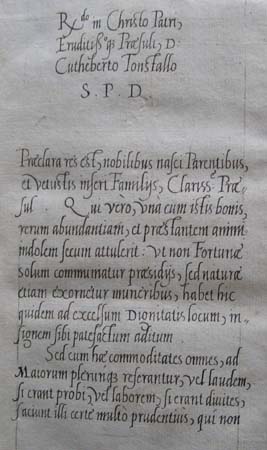 Rdo in Christo Patri,
Eruditisso qз Præsuli, D:
Cutheberto Tonstallo
S. P. D
Præclara res est, nobilibus nasci Parentibus,
et Vetustis inseri Familijs, Clarisse Præ
sul. Qui vero, una cum istis bonis,
rerum abundantiam, et præstantem animi
indolem secum attulerit: Vt non Fortunæ
solum communiatur præsidijs, sed naturæ
etiam exornetur muneribus, habet hic
quidem ad excelsum Dignitatis locum, in
signem sibi patefactum aditum
Sed cum hæ commoditates omnes, ad
Maiorum plerunqз referantur, vel laudem,
si erant probi, vel laborem, si erant diuites,
faciunt illi certe multo prudentius, qui non